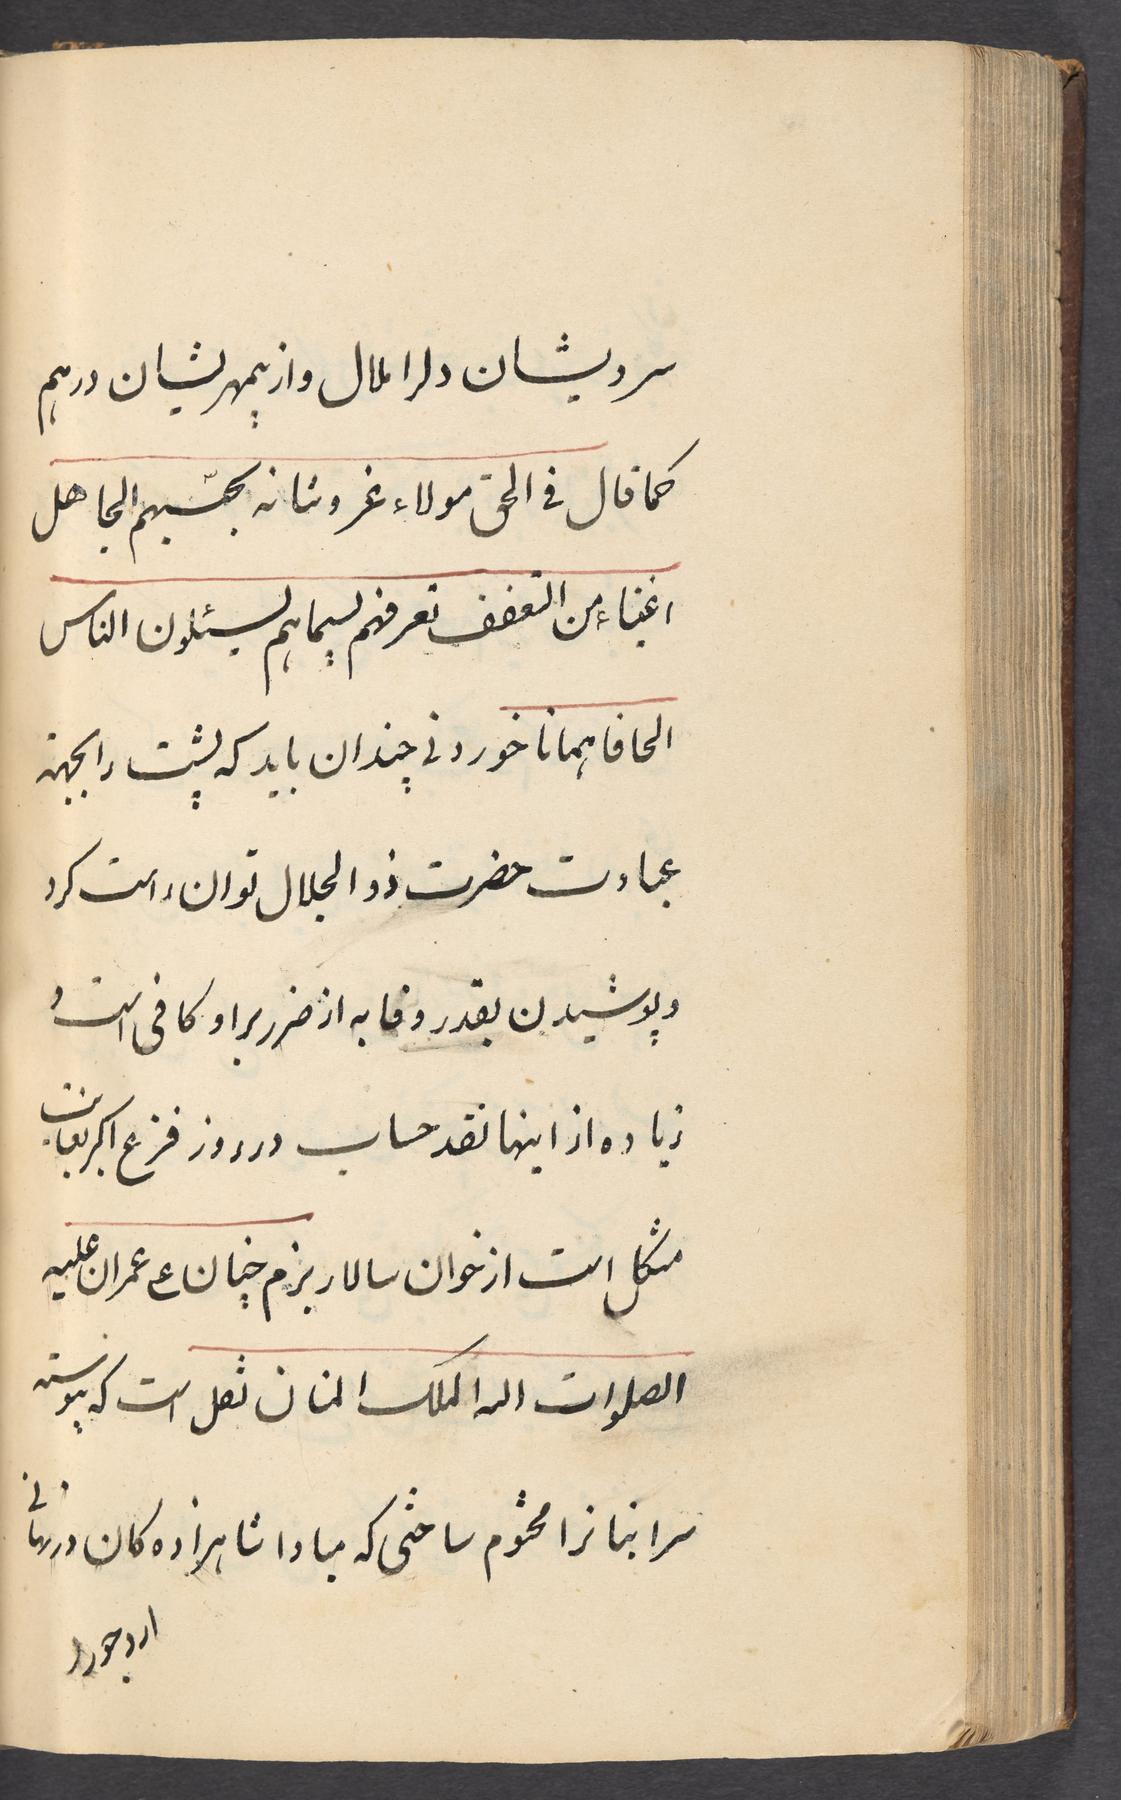 سر دیشان دلرا ملال و از بیمهریشان درهم
کما قال فی الحق مولاء عز و شانه یحسّبهم الجاهل
اغنیاء من التعفف تعرفهم بسیماهم لیسئلون الناس
الحافا همانا خوردنی چندان باید که پشت را بجهة
عبادت حضرت ذو الجلال توان راست کرد
و پوشیدن بقدر وقایه از ضرر برا و کافی است و
زیاده از اینها نقد حساب در روز فزع اکبر بغایت
مشکل است از خوان سالار بزم چنان ع عمران علیه
الصلوات الله الملک المنان نقل است که پیوسته
سر انبانرا مختوم ساختی که مبادا شاهزاده کان در نهانی
ارد جو را